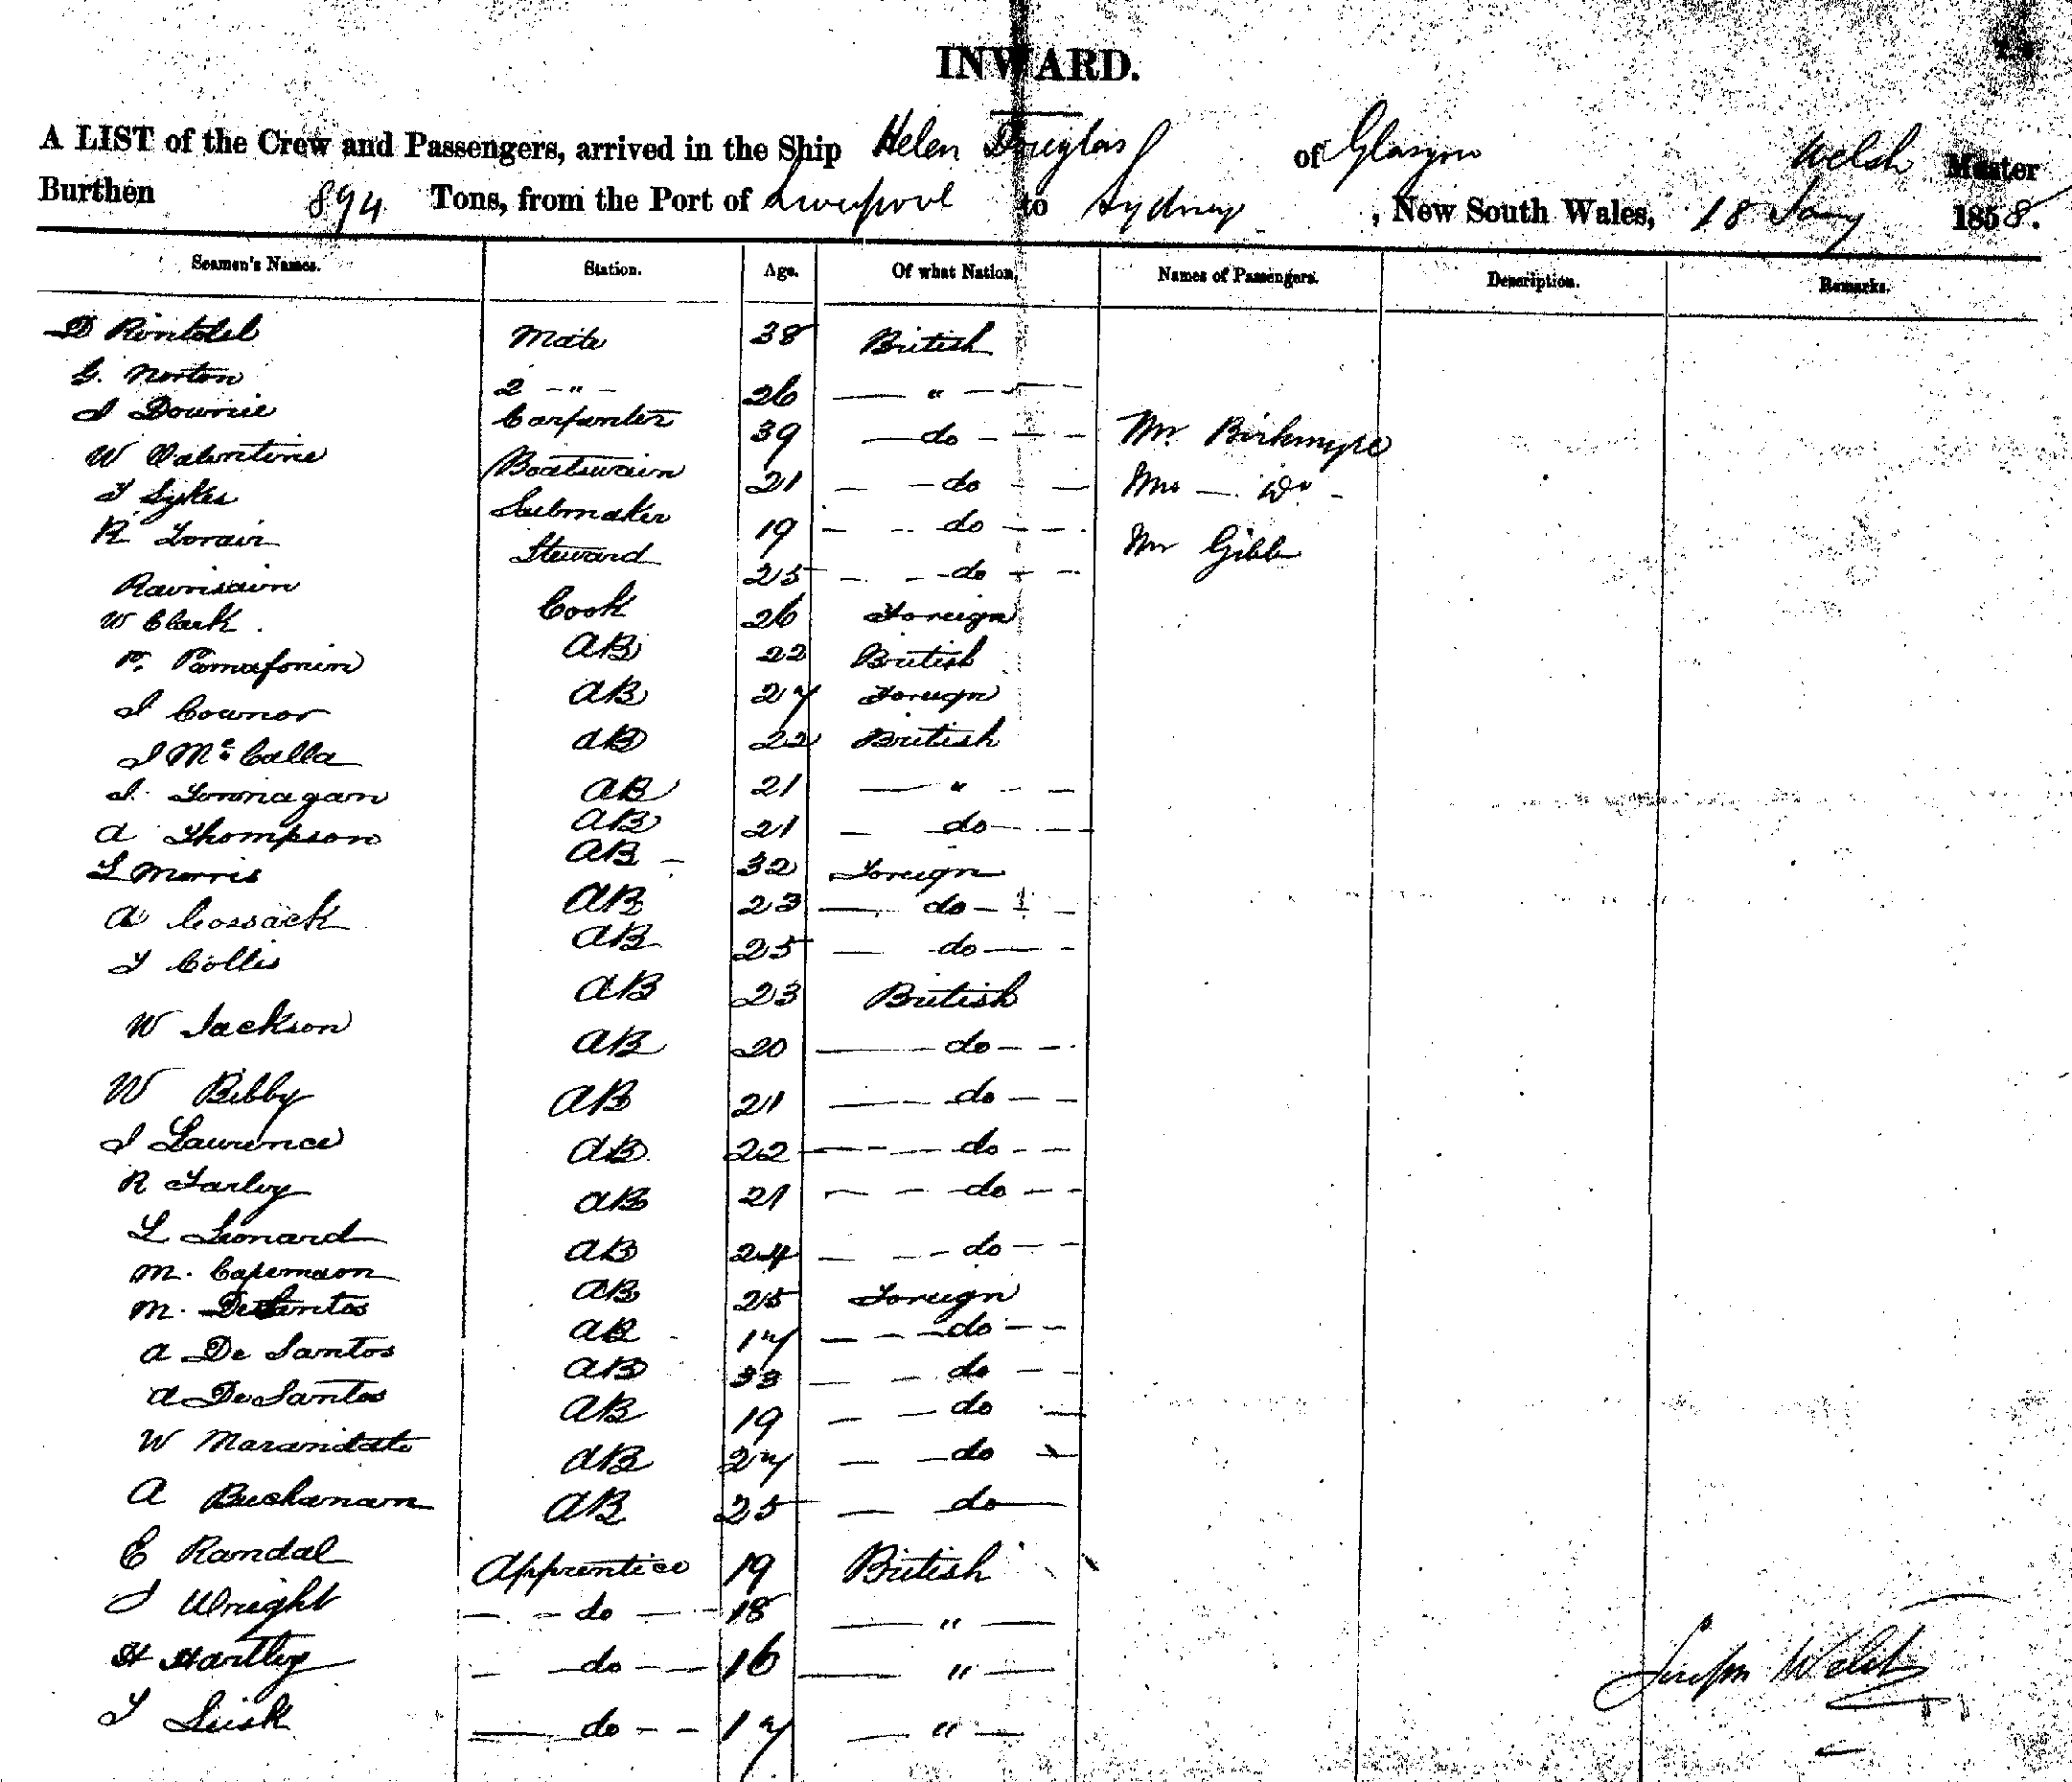 INWARD.
A LIST of the Crew and Passengers, arrived in the Ship Helen Douglas of Glasgow Welsh Master
Burthen 894 Tons, from the Port of Liverpool to Sydney , New South Wales, 18 Jany 1858.
Seamen's Names. Station. Age. Of what Nation. Names of Passengers. Description. Remarks.
D Mate 38 British
G. Norton 2 - " - 26 "
J Downie Carpenter 39 do Mr. Birkmyre
W Valentine Boatswain 21 do Mrs Do
T Sykes Sailmaker 19 do Mr Gibb
R Steward 25 do
Cook 26 Foreign
W Clark. AB 22 British
P. AB 27 Foreign
J Connor AB 22 British
J Mc Calla AB 21 "
J. AB 21 do
A Thompson AB 32 Foreign
L Morris AB 23 do
A Cossack AB 25 do
T Collis AB 23 British
W Jackson AB 20 do
W Bibby AB 21 do
J Laurence AB 22 do
R Farley AB 21 do
L Leonard AB 24 do
M. AB 25 Foreign
M. De Santos AB 17 do
A De Santos AB 33 do
A De Santos AB 19 do
W AB 27 do
A Buchanan AB 25 do
E Randal Apprentice 19 British
J Wright do 18 "
H Hartley do 16 "
T Lusk do 17 "
Joseph Welsh